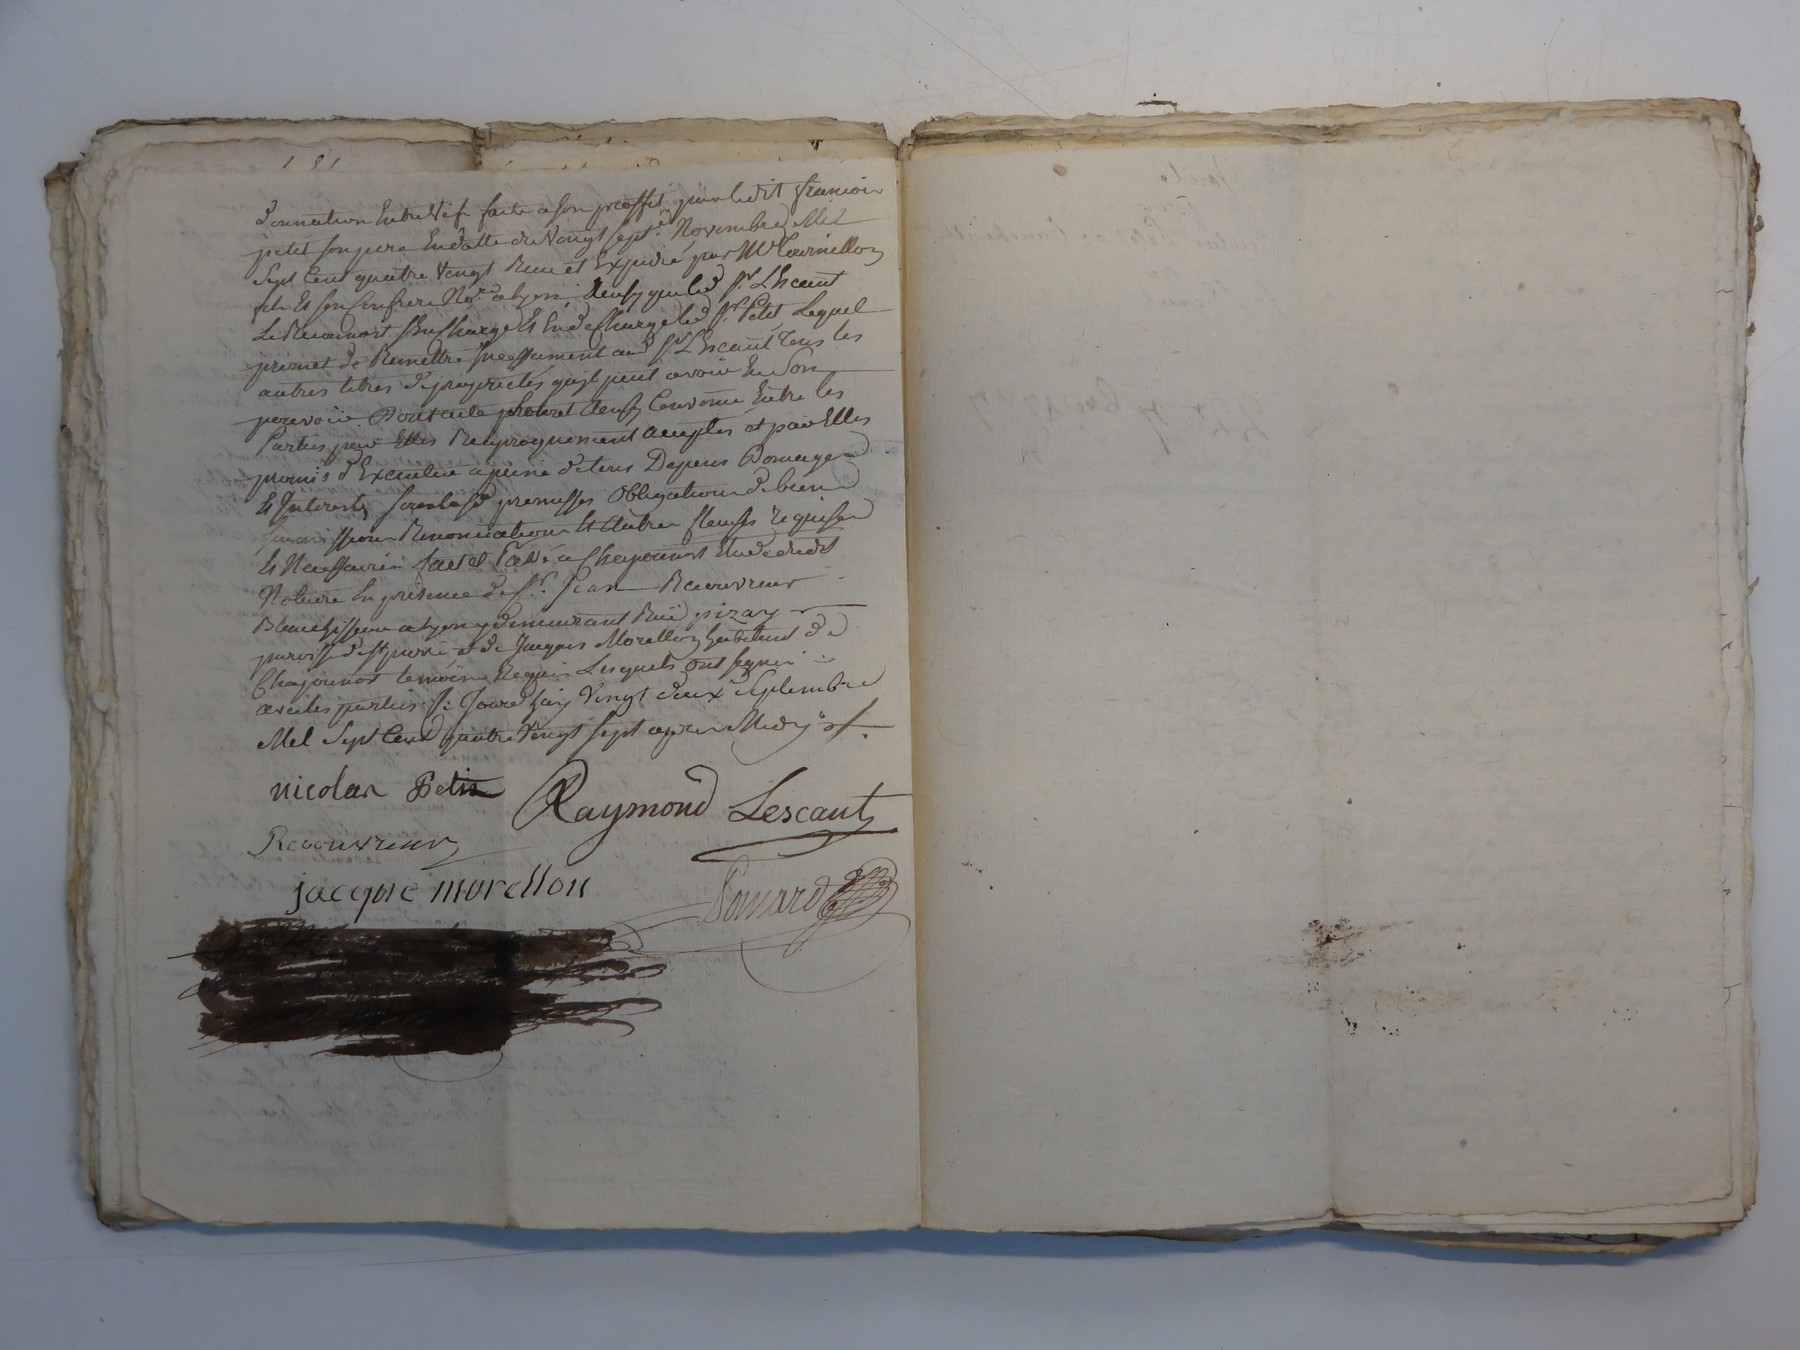 donnation Entre Vif faite a son proffit par ledit francois
petit son pere En datte du Vingt sept.e Novembre Mil
Sept Cent quatre Vingt Un et Expedié par Me Tournillon
fils Et son Confrere No.re a Lyon de quoy led Sr. Lescaut
Le Reconnoit S'En Charge Et En deCharge led Sr. Petit Lequel
promet de Remettre Incessament aud Sr. Lescaut Tous les
autres titres de proprietés qu'jl peut avoir En Son
pouvoir. Dont acte Convenu Entre les
Parties pour Elles Reciproquement acceptés et par Elles
promis d'Executer a peine de tous Depens Domages
Et Interests, sous lesd promesses Obligation de biens
soumissions Renonciations Et Autres Clauses requises
Et Necessaires fait et passé a Chaponost Etude dudit
Notaire En presence de Sr. Jean Recouvreur
Blanchisseur a Lyon y demeurant Ruë pizay
paroisse de St pierre et de Jacques Morellon habitant de
Chaponost temoins Requis Lesquels ont signé
avec les parties Ce Jourd'huy Vingt deux Septembre
Mil Sept Cent quatre Vingt Sept apres Midy
nicolas Petit Raymond Lescaut
Recouvreur
jacque morellon